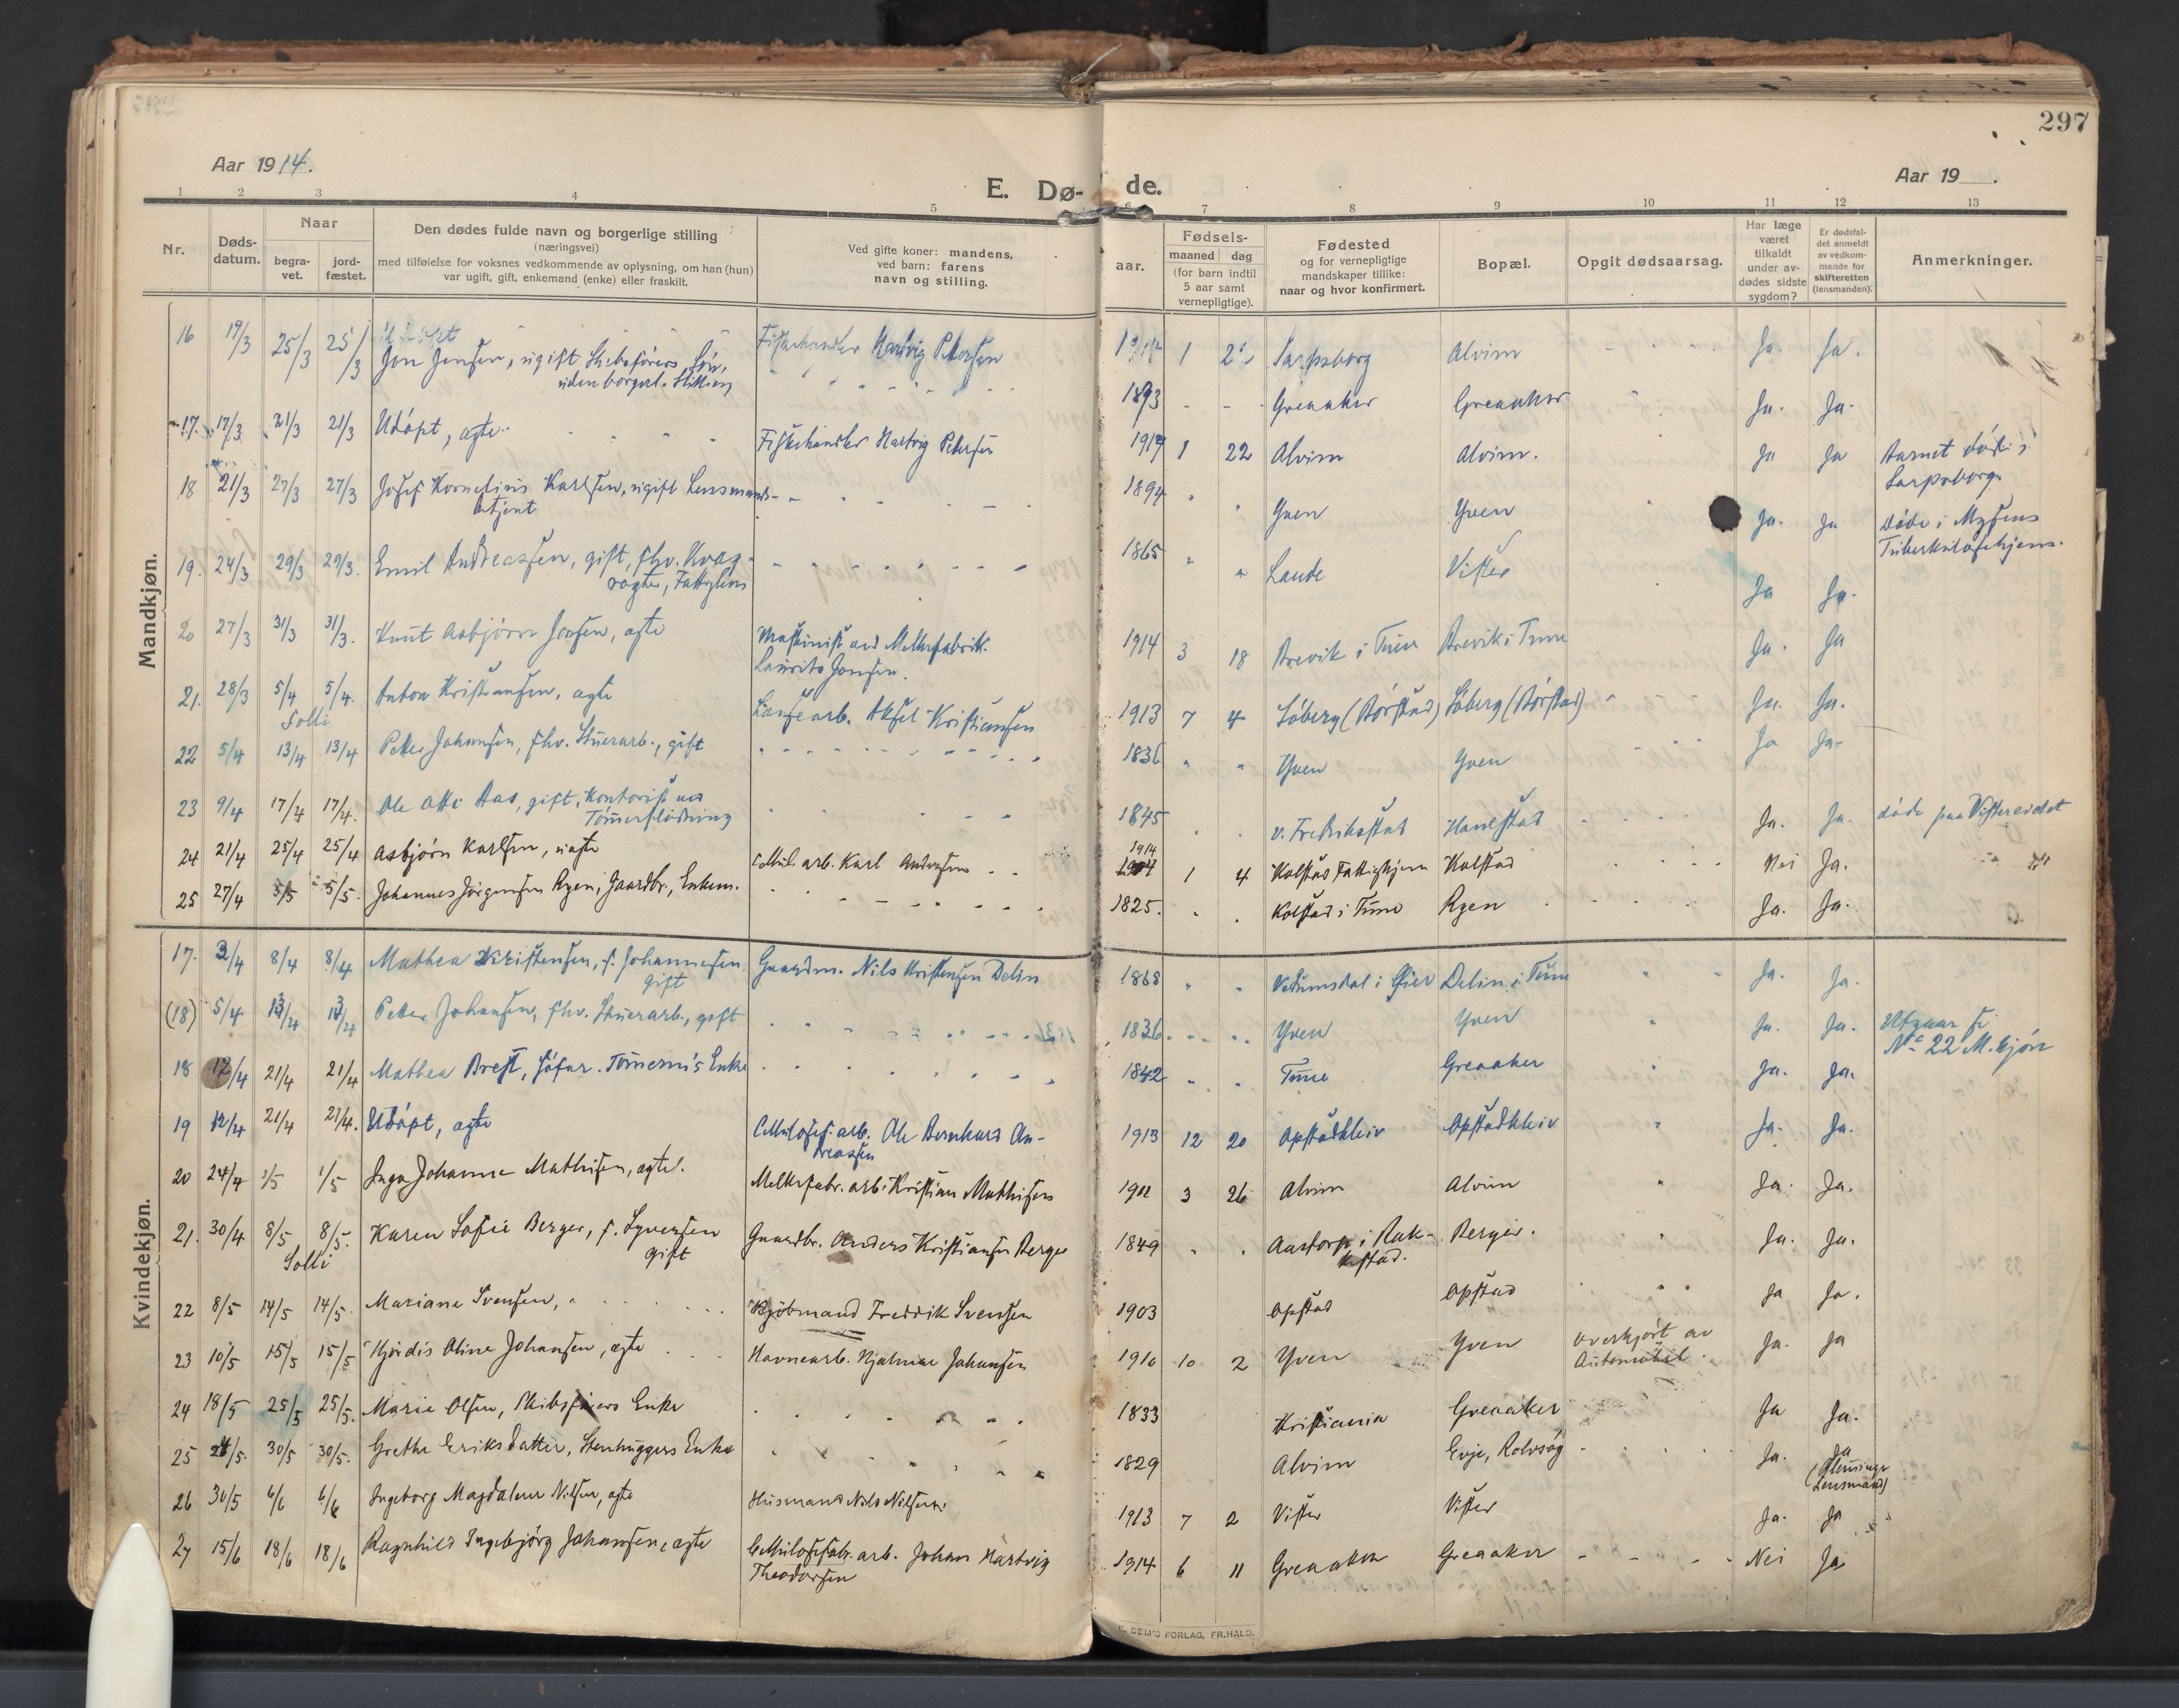 297
Aar 1914.
Aar 19 .
E. Dø- de.
1 2 3 4 5 6 7 8 9 10 11 12 13
Nr.
Døds-
datum.
Naar
begra-
vet.
jord-
fæstet.
Den dødes fulde navn og borgerlige stilling
(næringsvei)
med tilføielse for voksnes vedkommende av oplysning, om han (hun)
var ugift, gift, enkemand (enke) eller fraskilt.
Ved gifte koner: mandens,
ved barn: farens
navn og stilling.
aar.
Fødsels-
maaned dag
(for barn indtil
5 aar samt
vernepligtige).
Fødested
og for vernepligtige
mandskaper tillike:
naar og hvor konfirmert.
Bopæl.
Opgit dødsaarsag.
Har læge
været
tilkaldt
under av-
dødes sidste
sygdom?
Er dødsfal-
det anmeldt
av vedkom-
mende for
skifteretten
(lensmanden).
Anmerkninger.
Mandkjøn.
16 19/3 25/3 25/3 Fiskehandler Hartvig Petersen 1914 1 Sarpsborg Alvim Ja. Ja.
Jon Jensen, ugift Skibsførers Søn,
uden borgerl. Stilling 1893 Greaaker Greaaker Ja. Ja.
17. 17/3 21/3 21/3 Udøpt, ægte Fiskehandler Hartvig Petersen 1914 1 22 Alvim Alvim. Ja Ja Barnet døde i
Sarpsborg.
18 21/3 27/3 27/3 Josef Kornelius Karlsen, ugift Lensmands-
betjent 1894 Yven Yven Ja. Ja døde i Mysens
Tuberkulosehjem.
19. 24/3 29/3 29/3. Emil Andreassen, gift, fhv. Kvæg-
røgter, Fattiglem 1865 Lande Vister Ja Ja.
20 27/3 31/3 31/3. Knut Asbjørn Jonsen, ægte Maskinist ved Melkefabrik.
Laurits Jonsen. 1914 3 18 Brevik i Tune Brevik i Tune Ja. Ja
21. 28/3 5/4 5/4. Anton Kristiansen, ægte Lossearb. Aksel Kristiansen 1913 7 4 Løberg (Børstad) Løberg (Børstad) Ja. Ja.
Solli
22 5/4 13/4 13/4 Petter Johansen, fhv. Stuerarb., gift 1836 Yven Yven Ja Ja
23 9/4 17/4 17/4. Ole Atti Aas, gift, Kontorist ved
Tømmerflødning 1845 v. Fredriksstad Hanestad Ja. Ja. døde paa Vistereidet
24 21/4 25/4 25/4 Asbjørn Karlsen, uægte Cellul. arb. Karl Andersen 1914 1 4 Kolstad Fattighjem Kolstad Nei Ja.
25 27/4 5/5 5/5. Johannes Jørgensen Ryen, Gaardbr., Enkem. 1825. Kolstad i Tune Ryen Ja. Ja.
Kvindekjøn.
17. 3/4 8/4 8/4 Mathea Kristensen, f. Johannesen,
gift Gaardm. Nils Kristensen Delin 1868 i Øier Delin i Tune Ja. Ja.
(18) 5/4 13/4 13/4 Petter Johansen, fhv. Stuerarb., gift 1836 Yven Yven Ja. Ja. Utgaar se
No 22 M.kjøn
18 12/4 21/4 21/4 Mathea Brest, Enke 1842 Tune Greaaker Ja. Ja.
19 12/4 21/4 21/4. Udøpt, ægte Cellulosef. arb. Ole Bernhard An-
dreassen 1913 12 20 Opstadkleiv Opstadkleiv Ja. Ja.
20 24/4 1/5 1/5 Inga Johanne Mathisen, ægte. Melkefabr. arb. Kristian Mathisen 1911 3 26 Alvim Alvim Ja. Ja.
21. 30/4 8/5 8/5. Karen Sofie Berger, f. Syversen
gift Gaardbr. Anders Kristiansen Berger 1849 Aastorp i Rak-
kestad. Berger. Ja. Ja.
Solli
22 8/5 14/5 14/5. Mariane Svensen, Kjøbmand Fredrik Svensen 1903 Opstad Opstad Ja Ja.
23 10/5 15/5 15/5 Hjørdis Oline Johansen, ægte Havnearb. Hjalmar Johansen 1910 10 2 Yven Yven overkjørt av
Automobil. Ja. Ja
24 18/5 25/5 25/5. Marie Olsen, Skibsførers Enke 1833 Kristiania Greaaker Ja Ja.
25 24/5. 30/5 30/5. Grethe Eriksdatter, Stenhuggers Enke 1829 Alvim Evje, Rolvsøy Ja. Ja
(Glemminge
Lensmand)
26 30/5 6/6 6/6 Ingeborg Magdalene Nilsen, ægte Husmand Nils Nilsen. 1913 7 2 Vister Vister Ja. Ja
27 15/6 18/6 18/6 Ragnhild Ingebjørg Johansen, ægte Cellulosefabr. arb. Johan Hartvig
Theodorsen 1914 6 11 Greaaker Greaaker Nei Ja
SEM'S FORLAG, FR.HALD.